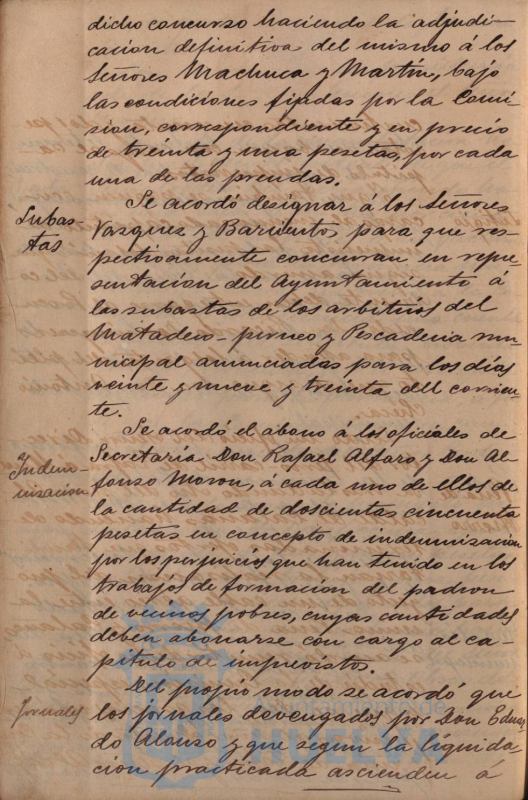 dicho concurso haciendo la adjudi-
cacion definitiva del mismo á los
Señores Machuca y Martin, bajo
las condiciones fijadas por la Comi-
sion, correspondiente y en precio
de treinta y una pesetas, por cada
una de las prendas.
Subas-
tas
Se acordó designar á los Señores
Vazquez y Barrientos para que res-
pectivamente concurran en repre-
sentacion del Ayuntamiento á
las subastas de los arbitrios del
Matadero-perneo y Pescaderia mu-
nicipal anunciadas para los días
veinte y nueve y treinta del corrien-
te.
Indem-
nizacion
Se acordó el abono á los oficiales de
Secretaría Don Rafael Alfaro y Don Al-
fonso Moron, á cada uno de ellos de
la cantidad de doscientas cincuenta
pesetas en concepto de indemnizacion
por los perjuicios que han tenido en los
trabajos de formacion del padron
de vecinos pobres, cuyas cantidades
deben abonarse con cargo al ca-
pitulo de imprevistos.
Jornales
Del propio modo se acordó que
los jornales devengados por Don Eduar-
do Alonso y que segun la líquida
cion practicada ascienden á
Ayuntamiento de
HUELVA